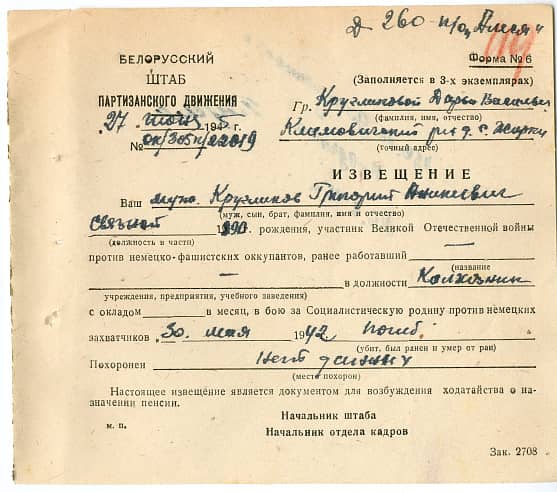 Д 260 п/о „Алеся"
БЕЛОРУССКИЙ
ШТАБ
ПАРТИЗАНСКОГО ДВИЖЕНИЯ
27 июня 1945 г.
№
Форма № 6
(Заполняется в 3-х экземплярах)
Гр. Кругликовой Дарье
(фамилия, имя, отчество)
Климовичский д.
(точный адрес)
ИЗВЕЩЕНИЕ
Ваш муж Кругликов Григорий
(муж, сын, брат, фамилия, имя и отчество)
связной 1890 г. рождения, участник Великой Отечественной войны
(должность в части)
против немецко-фашистских оккупантов, ранее работавший —
(название
— в должности Колхозник
учреждения, предприятия, учебного заведения)
с окладом в месяц, в бою за Социалистическую родину против немецких
захватчиков 30 мая 1942 погиб.
(убит, был ранен и умер от ран)
Похоронен нет данных
(место похорон)
Настоящее извещение является документом для возбуждения ходатайства о на-
значении пенсии.
Начальник штаба
м. п.
Начальник отдела кадров
Зак. 2708